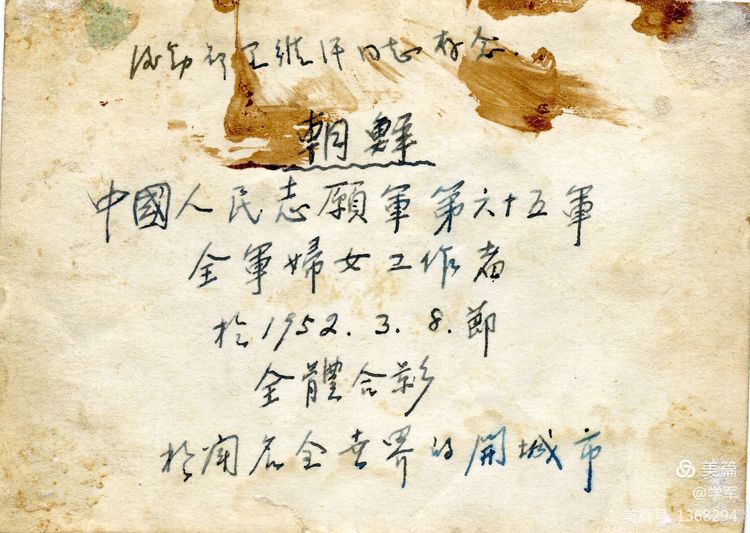 後勤部王同志存念.
朝鮮
中國人民志願軍第六十五軍
全軍婦女工作者
於1952.3.8.節
全體合影
於聞名全世界的開城市
美篇
@学军
美篇号 1368294